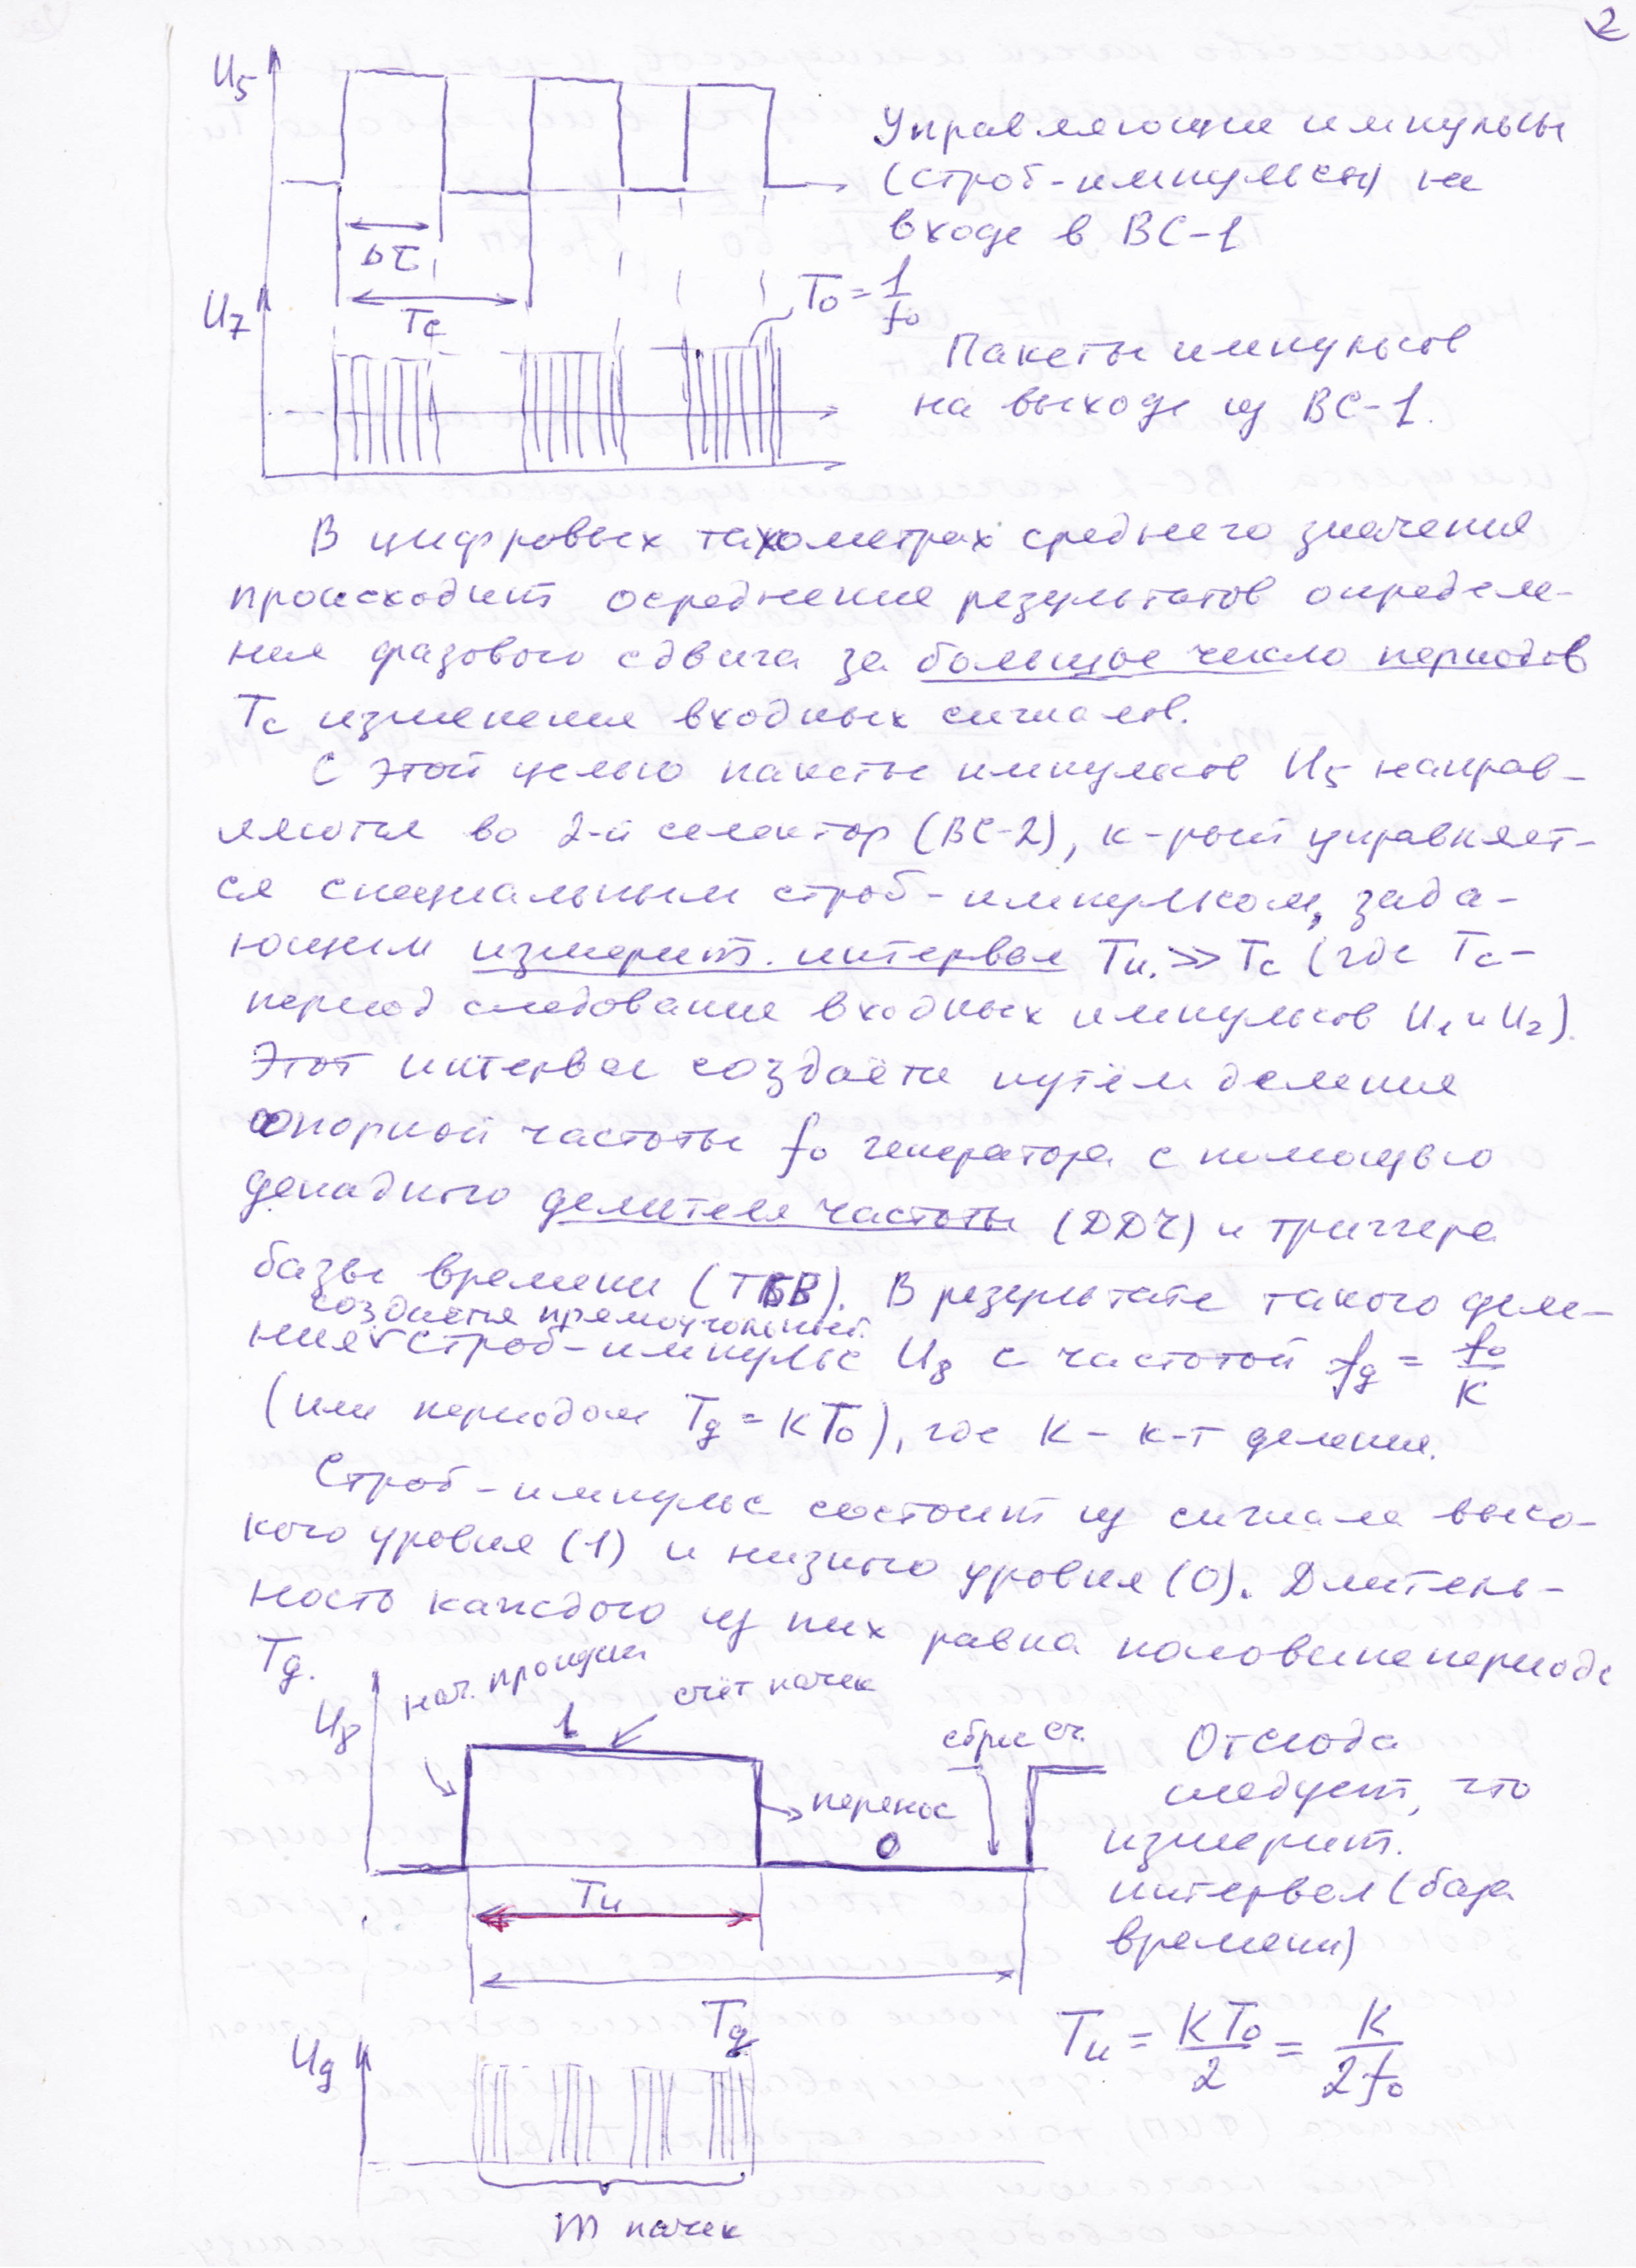 2
U5
Управляющие импульсы
(строб-импульсы) на
входе в ВС-1
Δτ
Tc
U7
T₀ = 1/f₀
Пакеты импульсов
на выходе из ВС-1.
В цифровых тахометрах среднего значения
происходит осреднение результатов определе-
ния фазового сдвига за большое число периодов
Tс изменения входных сигналов.
С этой целью пакеты импульсов U5 направ-
ляются во 2-й селектор (ВС-2), к-рый управляет-
ся специальным строб-импульсом, зада-
ющим измерит. интервал Tи. >> Tс (где Tс-
период следование входных импульсов U1 и U2).
Этот интервал создаётся путём деления
опорной частоты f₀ генератора с помощью
декадного делителя частоты (ДДЧ) и триггера
базы времени (ТБВ). В результате такого деле-
создается прямоугольный
ния строб-импульс U8 с частотой fg = f₀/K
(или периодом Tg = KT₀), где K - к-т деления.
Строб-импульс состоит из сигнала высо-
кого уровня (1) и низкого уровня (0). Длитель-
ность каждого из них равна половине периода
Tg.
U8
нач. процции
1
счёт пачек
сброс сч.
перенос
0
Tи
Tg
Отсюда
следует, что
измерит.
интервал (база
времени)
Tи = KT₀/2 = K/2f₀
Ug
m пачек